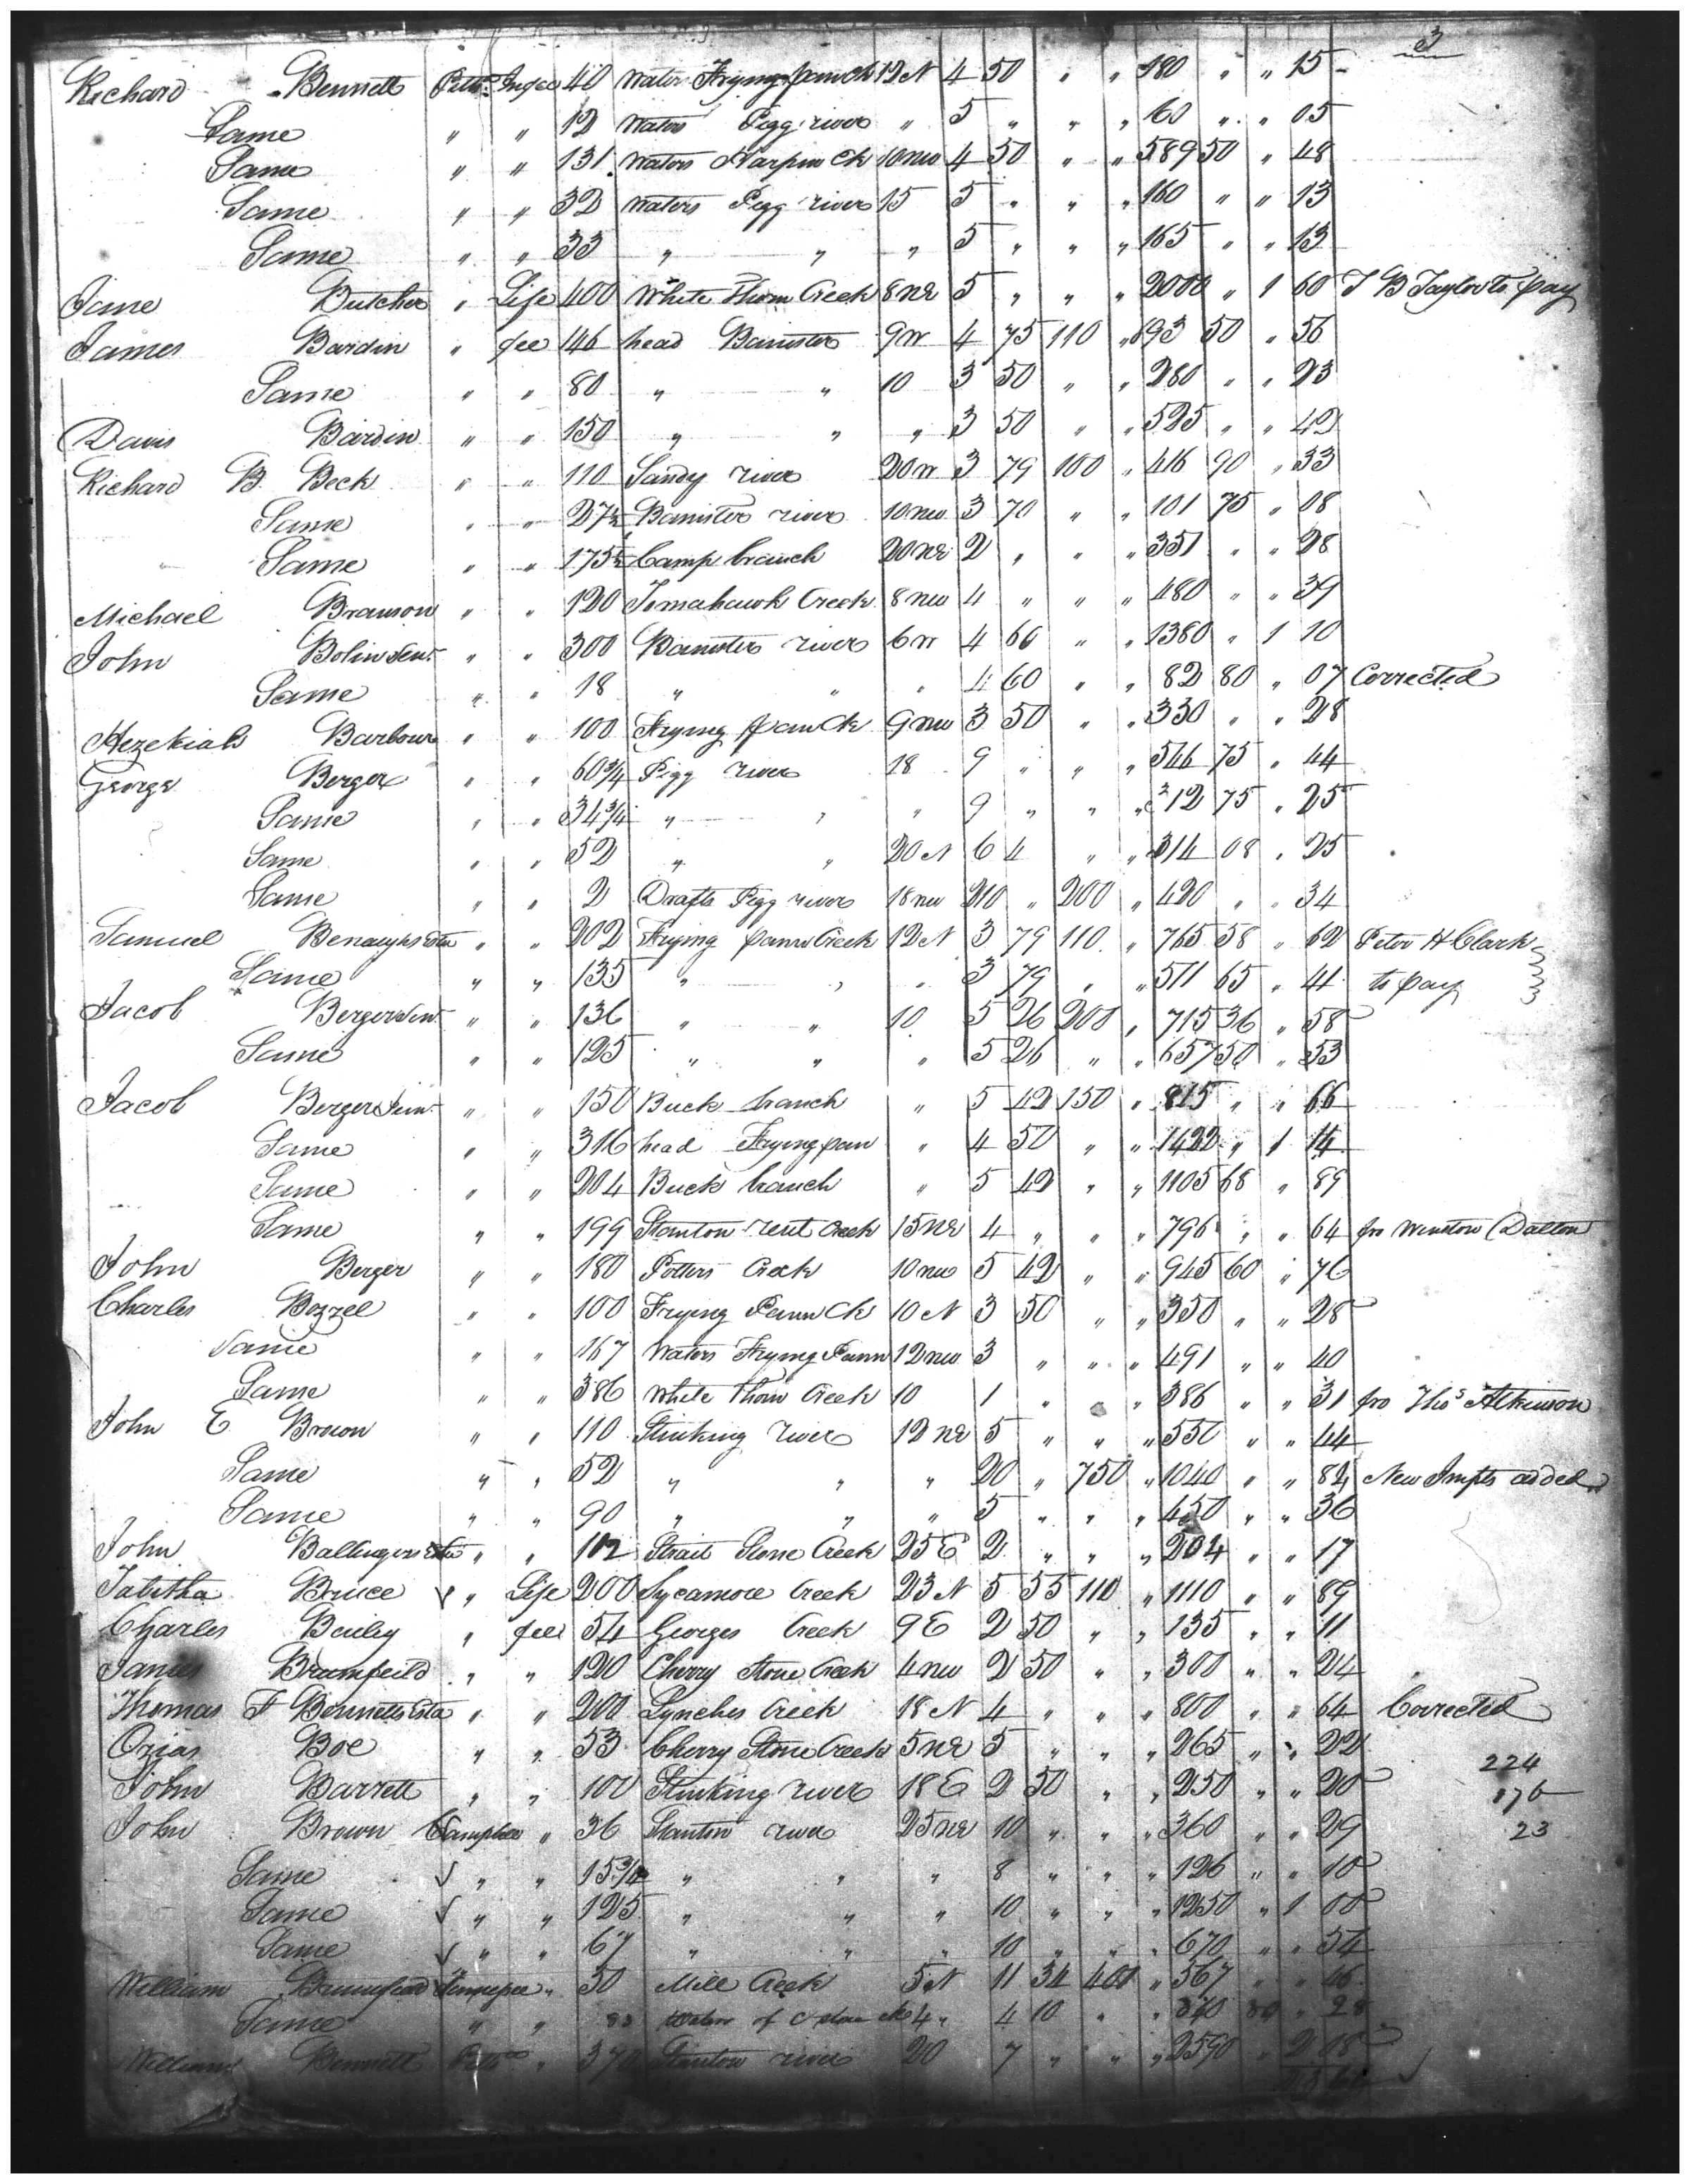 3
Richard Bennett Pitta In fee 40 Water Frying pan Ck 12 N 4 50 " " 180 " " 15
Same " " 12 Waters Pigg river " 5 " " " 60 " " 05
Same " " 131 Waters Harpin Ck 10 NW 4 50 " " 589 50 " 48
Same " " 32 Waters Pigg river 15 5 " " " 160 " " 13
Same " " 33 " " " 5 " " " 165 " " 13
Jane Butcher " Life 400 White Thorn Creek 8 NE 5 " " " 2000 " 1 60 T B Taylor to pay
James Bardin " fee 146 head Banister 9 W 4 75 110 " 693 50 " 56
Same " " 80 " " 10 3 50 " " 280 " " 23
Davis Bardin " " 150 " " " 3 50 " " 525 " " 42
Richard B Beck " " 110 Sandy river 20 W 3 79 100 " 416 90 " 33
Same " " 27½ Banister river 10 NW 3 70 " " 101 75 " 08
Same " " 175½ Camp branch 20 NE 2 " " " 351 " " 28
Michael Branson " " 120 Tomahawk Creek 8 NW 4 " " " 480 " " 39
John Bolin Senr " " 300 Banister river 6 W 4 66 " " 1380 " 1 10
Same " " 18 " " " 4 60 " " 82 80 " 07 Corrected
Hezekiah Barbour " " 100 Frying pan Ck 9 NW 3 50 " " 350 " " 28
George Berger " " 60¾ Pigg river 18 9 " " " 546 75 " 44
Same " " 34¾ " " " 9 " " " 312 75 " 25
Same " " 52 " " 20 N 6 4 " " 314 08 " 25
Same " " 2 Drafts Pigg river 18 NW 210 " 200 " 420 " " 34
Samuel Benaughs Esta " " 202 Frying pann Creek 12 N 3 79 110 " 765 58 " 62 Peter H Clark
Same " " 135 " " " 3 79 " " 511 65 " 41 to pay
Jacob Berger Senr " " 136 " " 10 5 26 200 " 715 36 " 58
Same " " 125 " " " 5 26 " " 657 50 " 53
Jacob Berger Junr " " 150 Buck branch " 5 42 150 " 815 " " 66
Same " " 316 head Frying pan " 4 50 " " 1422 " 1 14
Same " " 204 Buck branch " 5 42 " " 1105 68 " 89
Same " " 199 Stanton Creek 15 NE 4 " " " 796 " " 64 fro Winston Dalton
John Berger " " 180 Potters Creek 10 NW 5 42 " " 945 60 " 76
Charles Bozzel " " 100 Frying Pann Ck 10 N 3 50 " " 350 " " 28
Same " " 167 Waters Frying Pann 12 NW 3 " " " 491 " " 40
Same " " 386 White Thorn Creek 10 1 " " " 386 " " 31 fro Thos Atkinson
John E Brown " " 110 Stinking river 12 NE 5 " " " 550 " " 44
Same " " 52 " " " 20 " 750 " 1040 " " 84 New Impts added
Same " " 90 " " " 5 " " " 450 " " 36
John Ballingers Esta " " 102 Strait Stone Creek 25 E 2 " " " 204 " " 17
Tabitha Bruce " Life 200 Sycamore Creek 23 N 5 55 110 " 1110 " " 89
Charles Bailey " fee 54 Georges Creek 9 E 2 50 " " 135 " " 11
James Brumfeild " " 120 Cherry Stone Creek 4 NW 2 50 " " 300 " " 24
Thomas F Bennetts Esta " " 200 Lynches Creek 18 N 4 " " " 800 " " 64 Corrected
Ozias Boe " " 53 Cherry Stone Creek 5 NE 5 " " " 265 " " 22
224
John Barrett " " 100 Stinking river 18 E 2 50 " " 250 " " 20
176
John Brown Campbell " 36 Stanton river 25 NE 10 " " " 360 " " 29
23
Same " " 15¾ " " " 8 " " " 126 " " 10
Same " " 125 " " " 10 " " " 1250 " 1 00
Same " " 67 " " " 10 " " " 670 " " 54
William Tennessee " 50 Mill Creek 5 N 11 34 400 " 567 " " 46
Same " " Water of 4 " 4 10 " " 28
William Bennett Pitta " 370 Stanton river 20 7 " " " 2590 " 2 08